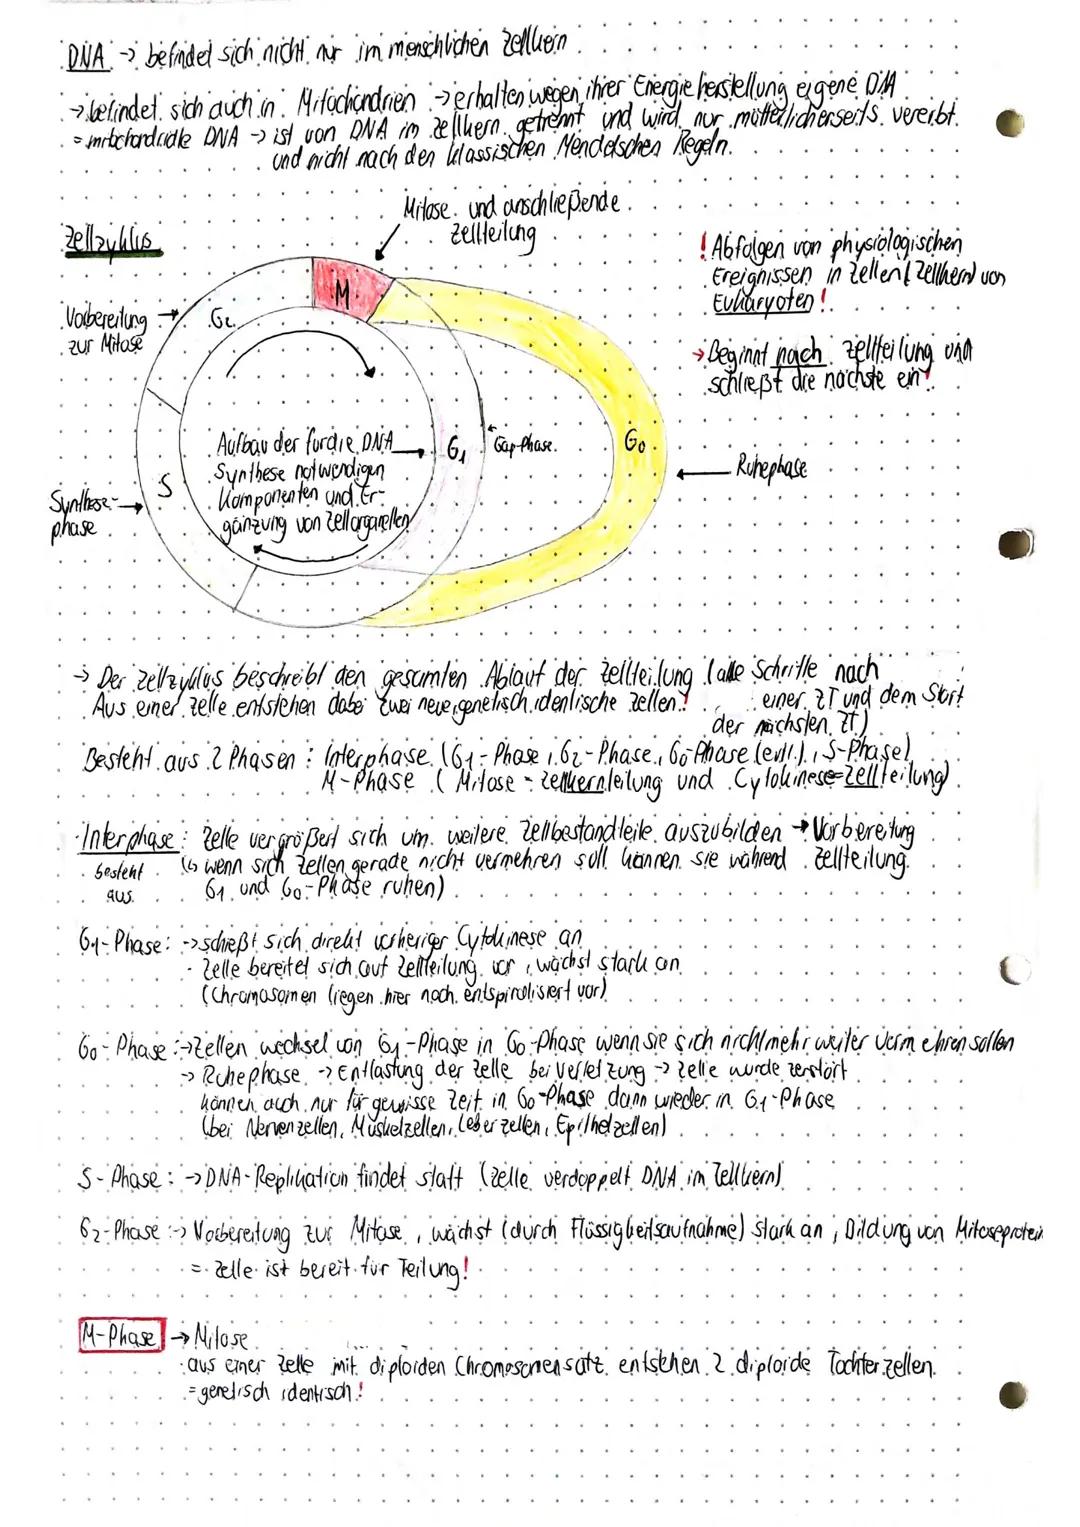 DNA → befindet sich nicht nur im menschlichen Zellkern
→ befindet sich auch in Mitochondrien → erhalten wegen ihrer Energieherstellung eigene DNA
= mitochondriale DNA → ist von DNA im Zellkern getrennt und wird nur mütterlicherseits vererbt
und nicht nach den klassischen Mendelschen Regeln.
Mitose und anschließende
Zellteilung
Zellzyklus
! Abfolgen von physiologischen
Ereignissen in Zellen (Zellkern) von
Eukaryoten !
→ Beginnt nach Zellteilung und
schließt die nächste ein!
M
G2
Vorbereitung →
zur Mitose
Aufbau der für die DNA
Synthese notwendigen
Komponenten und Er-
gänzung von Zellorganellen
G1
Gap-Phase
G0
Ruhephase
S
Synthese-
phase
→ Der Zellzyklus beschreibt den gesamten Ablauf der Zellteilung (alle Schritte nach
einer ZT und dem Start
der nächsten ZT)
Aus einer Zelle entstehen dabei zwei neue, genetisch identische Zellen!
Besteht aus 2 Phasen : Interphase (G1-Phase, G2-Phase, G0-Phase (evtl.), S-Phase)
M-Phase ( Mitose = Zellkernteilung und Cytokinese=Zellteilung)
Interphase : Zelle vergrößert sich um weitere Zellbestandteile auszubilden → Vorbereitung
Zellteilung
besteht
aus
(↳ wenn sich Zellen gerade nicht vermehren soll können sie während
G1 und G0-Phase ruhen)
G1-Phase: → schießt sich direkt vorheriger Cytokinese an
- Zelle bereitet sich auf Zellteilung vor, wächst stark an
(Chromosomen liegen hier noch entspiralisiert vor)
G0-Phase :→ Zellen wechsel von G1-Phase in G0-Phase wenn sie sich nicht mehr weiter vermehren sollen
→ Ruhephase → Entlastung der Zelle bei Verletzung → Zelle wurde zerstört
können auch nur für gewisse Zeit in G0-Phase dann wieder in G1-Phase
(bei Nervenzellen, Muskelzellen, Leberzellen, Epithelzellen)
S-Phase: → DNA-Replikation findet statt (Zelle verdoppelt DNA im Zellkern)
G2-Phase :→ Vorbereitung zur Mitose, wächst (durch Flüssigkeitsaufnahme) stark an, Bildung von Mitoseprotein
= Zelle ist bereit für Teilung!
M-Phase → Mitose
aus einer Zelle mit diploiden Chromosomensatz entstehen 2 diploide Tochterzellen
= genetisch identisch!